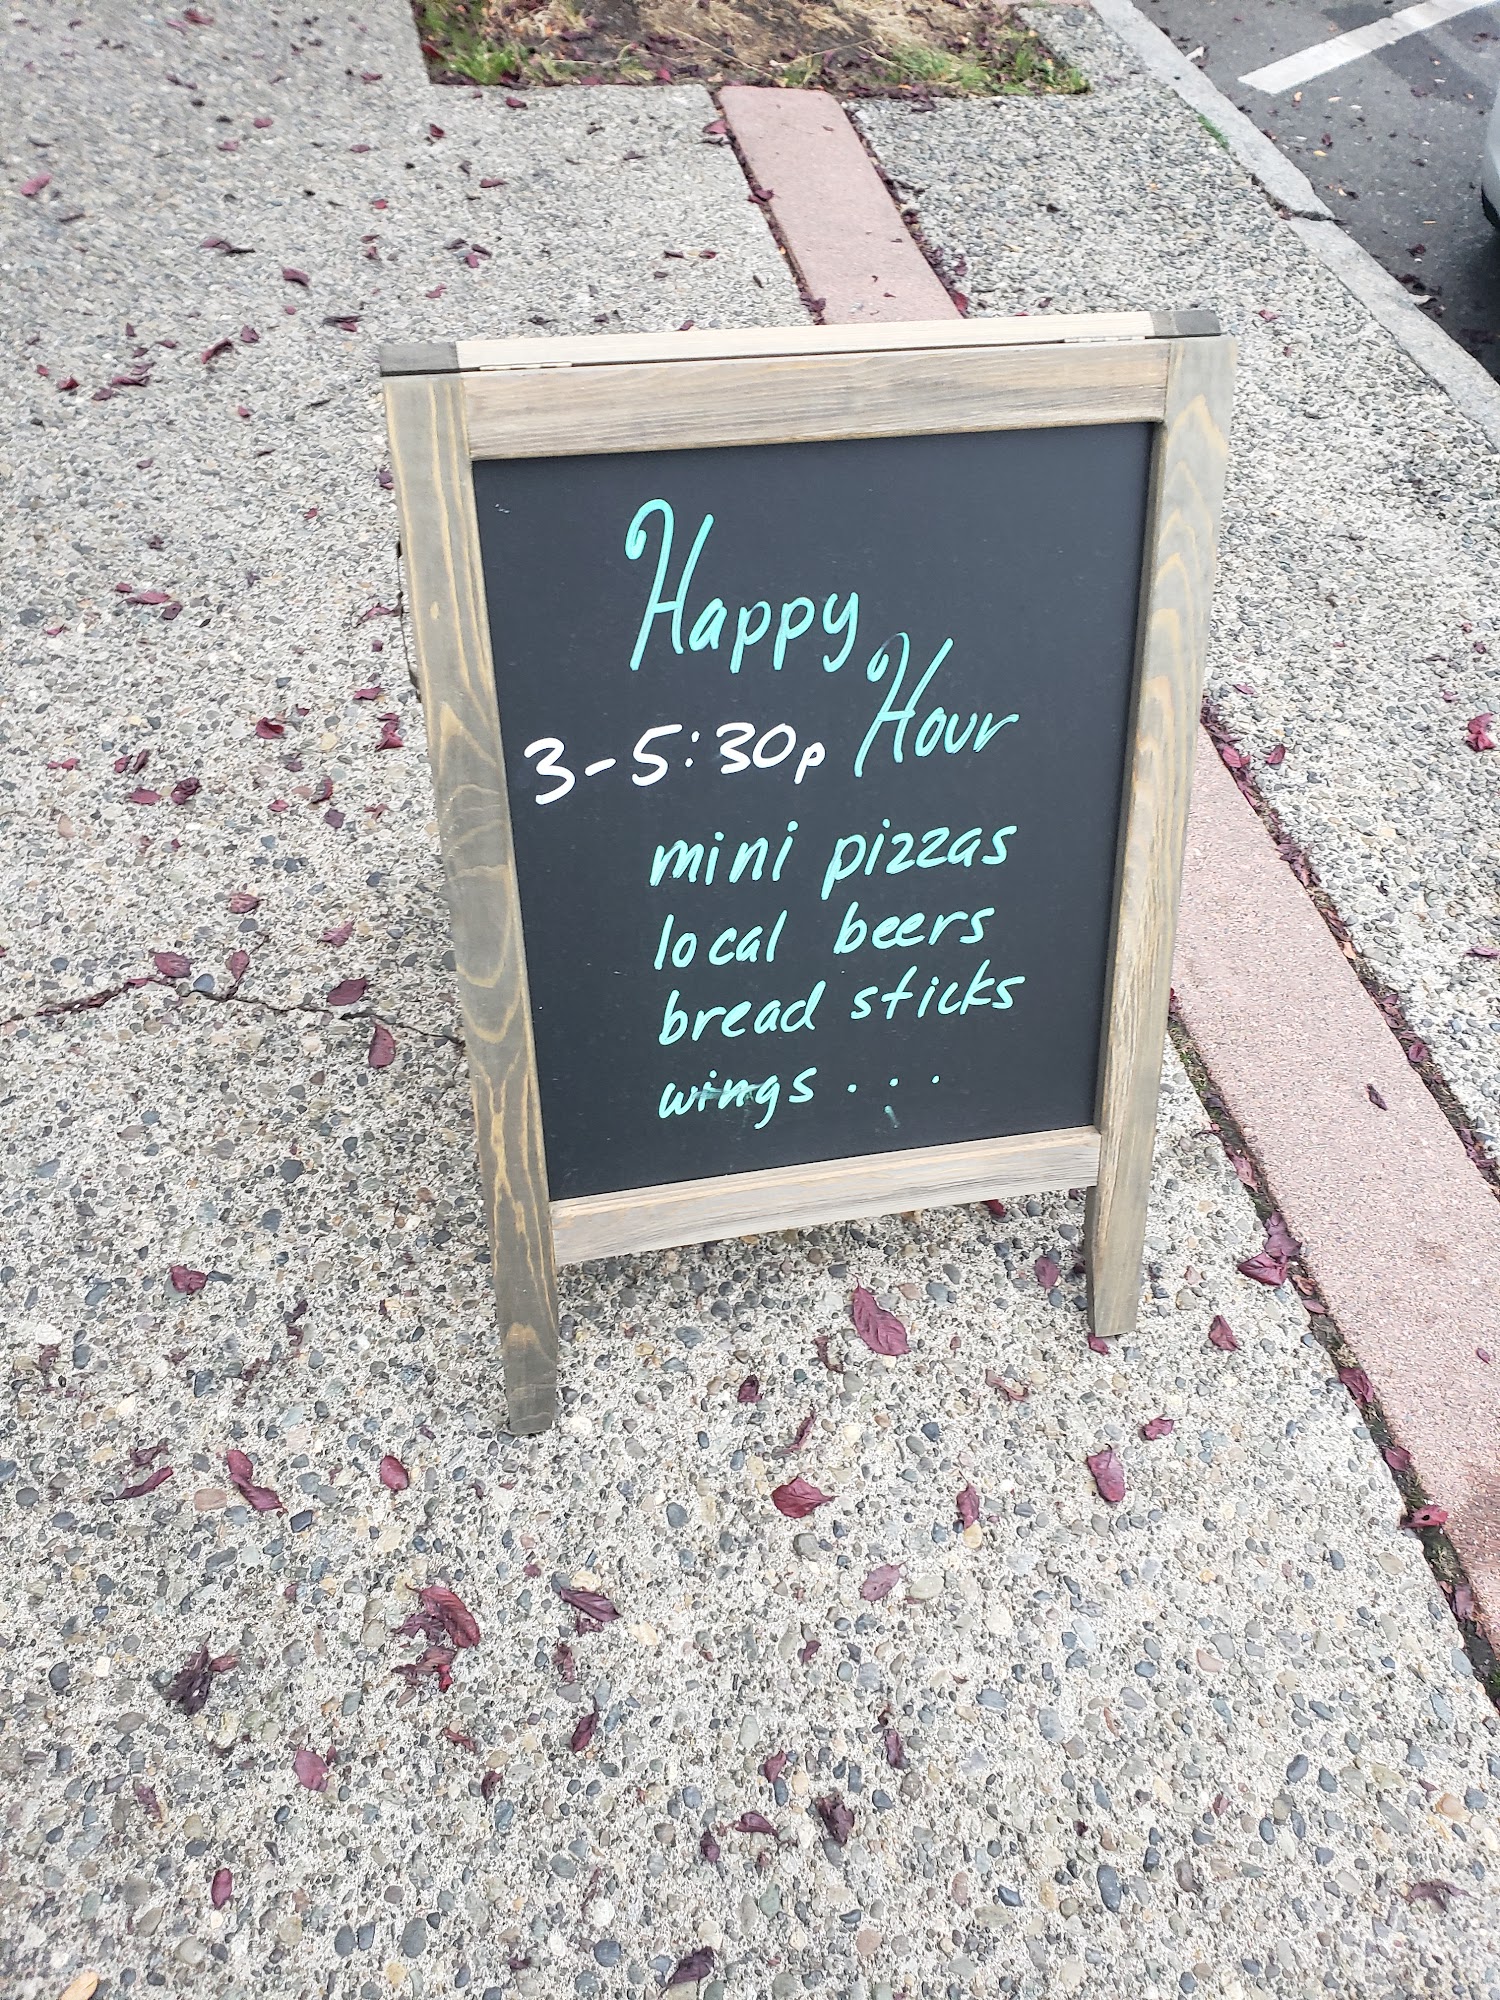 Happy
Hour
3-5:30p
mini pizzas
local beers
bread sticks
wings . . .